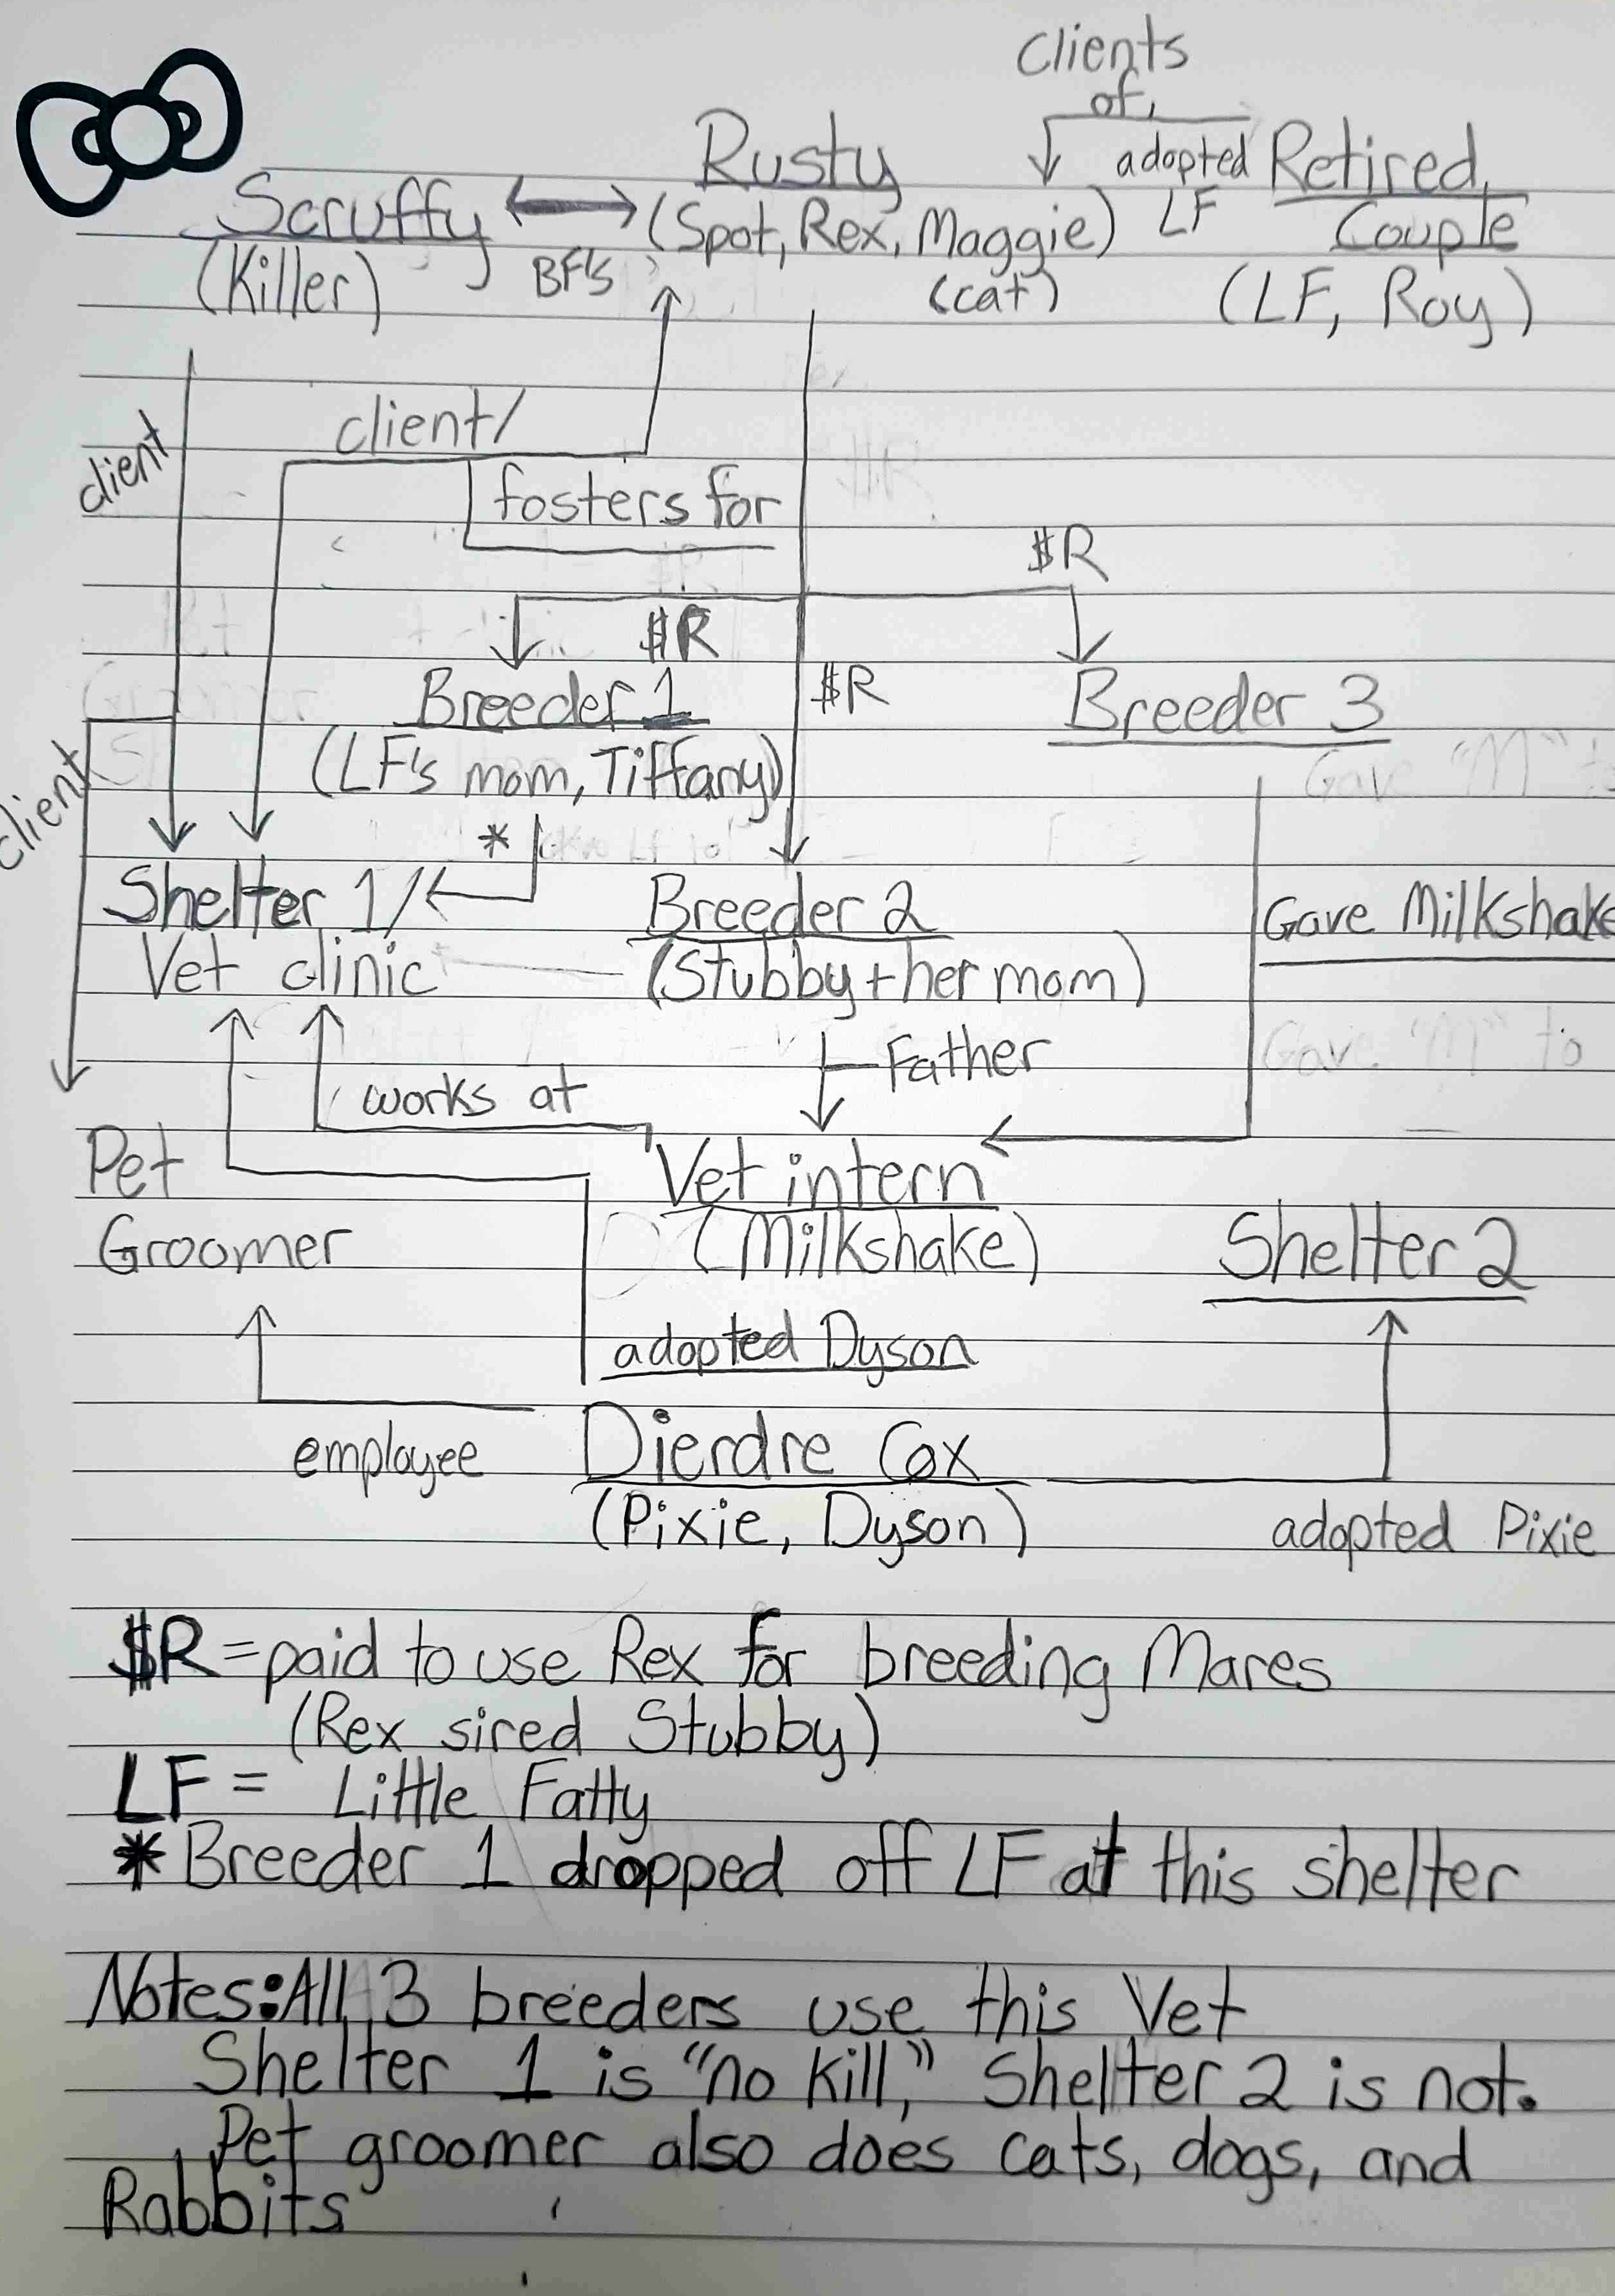 Clients
of,
adopted
LF
Rusty
(Spot, Rex, Maggie)
(cat)
Retired
Couple
(LF, Roy)
Scruffy
(Killer)
BF's
client
client/
fosters for
$R
$R
$R
Breeder 1
(LF's mom, Tiffany)
Breeder 3
Gave "M" to
client
*
Shelter 1/
Vet clinic
Breeder 2
(Stubby + her mom)
Gave Milkshake
Gave "M" to
Father
works at
Pet
Groomer
Vet intern
(Milkshake)
Shelter 2
adopted Dyson
employee
Dierdre Cox
(Pixie, Dyson)
adopted Pixie
$R = paid to use Rex for breeding Mares
(Rex sired Stubby)
LF = Little Fatty
* Breeder 1 dropped off LF at this shelter
Notes: All 3 breeders use this Vet
Shelter 1 is "no kill," Shelter 2 is not.
Pet groomer also does cats, dogs, and
Rabbits